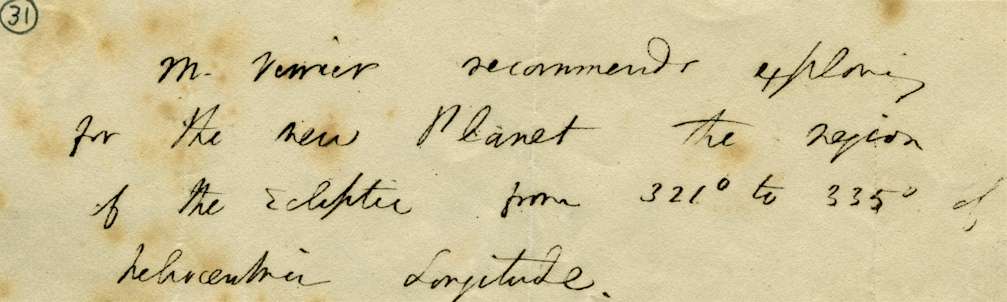 31
M. Verrier recommends exploring
for the new Planet the region
of the Ecliptic from 321° to 335° of
heliocentric Longitude.